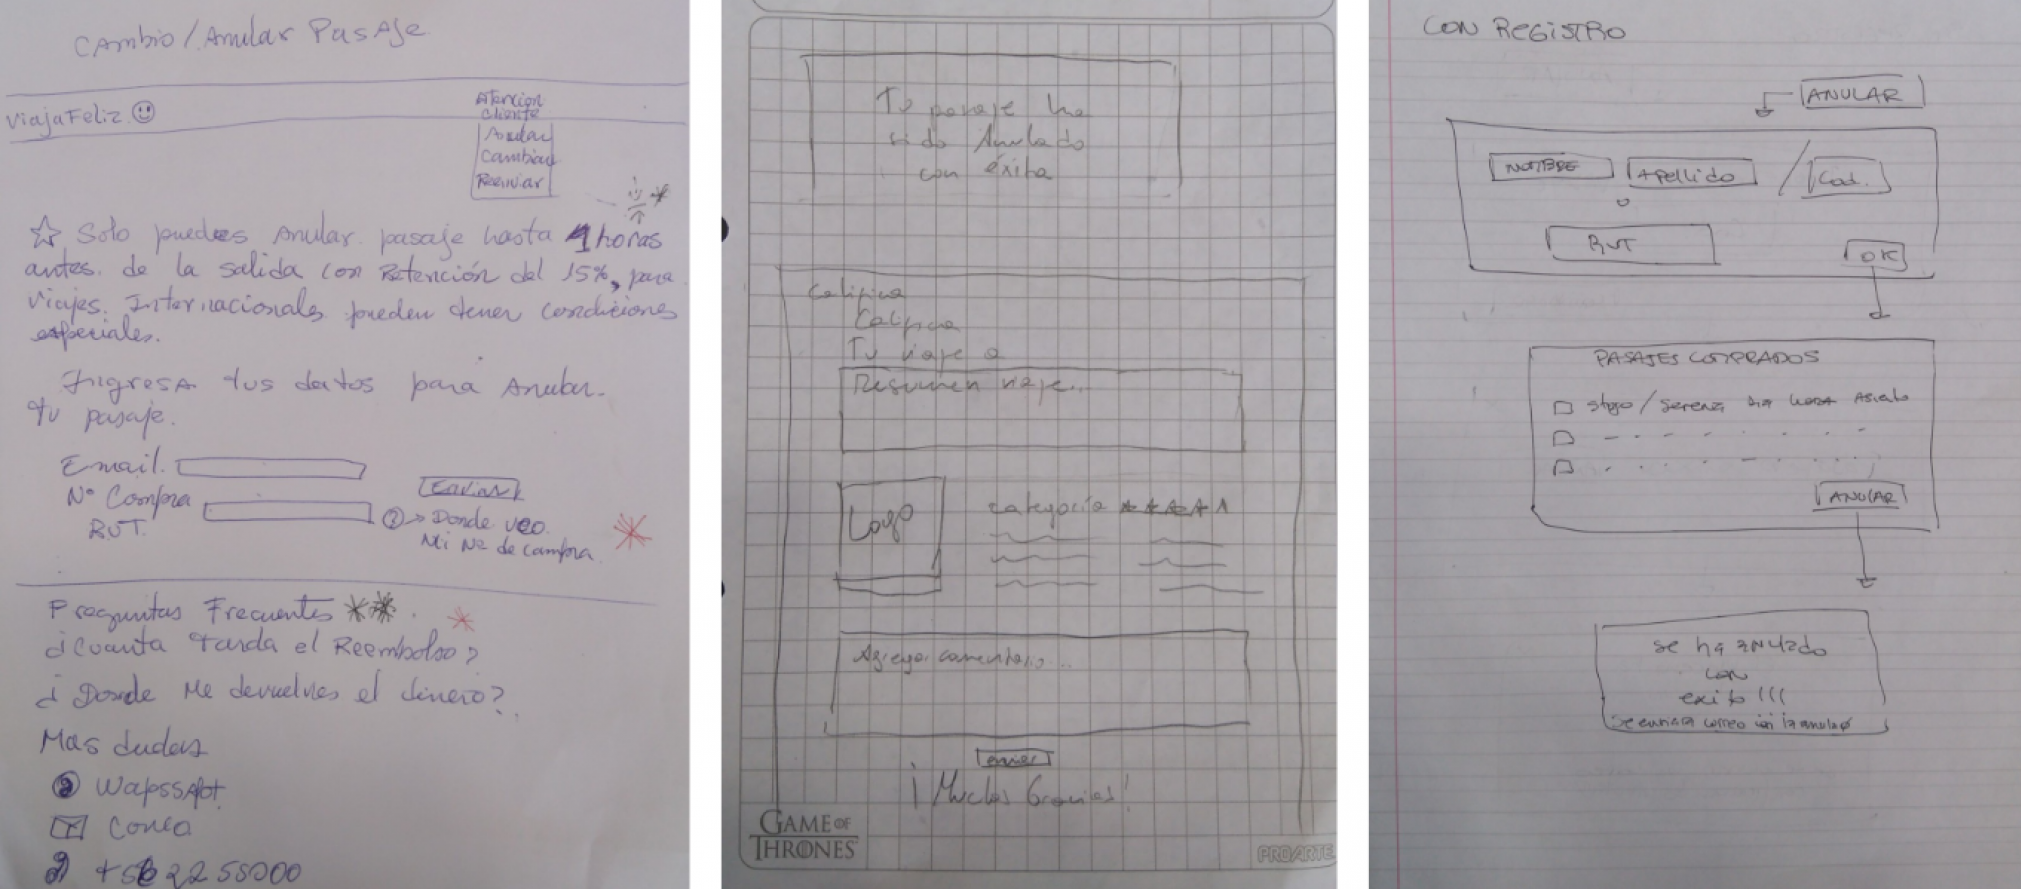 Cambio/Anular Pasaje
ViajaFeliz
Atencion
Cliente
Anular
Cambiar
Reenviar
Solo puedes Anular pasaje hasta 4 horas
antes. de la salida con Retención del 15%, para
viajes. Internacionales pueden tener condiciones
especiales.
Ingresa tus datos para Anular.
tu pasaje.
Email.
Nº Compra
RUT.
Enviar
? → Donde veo
Mi Nº de compra
Preguntas Frecuentes
¿Cuanto Tarda el Reembolso?
¿Donde Me devuelves el dinero?
Mas dudas
WapssApt
Correo
+56 22 55000
Tu pasaje ha
sido Anulado
con éxito
Califica
Califica
Tu viaje a
Resumen viaje...
Logo
categoría
Agregar comentario...
enviar
¡Muchas Gracias!
GAME OF
THRONES
PROARTE
CON REGISTRO
ANULAR
NOMBRE
Apellido
/
Cod.
o
RUT
OK
PASAJES COMPRADOS
stgo / serena dia hora Asiento
ANULAR
se ha anulado
con
exito !!!
se enviara correo con la anulao